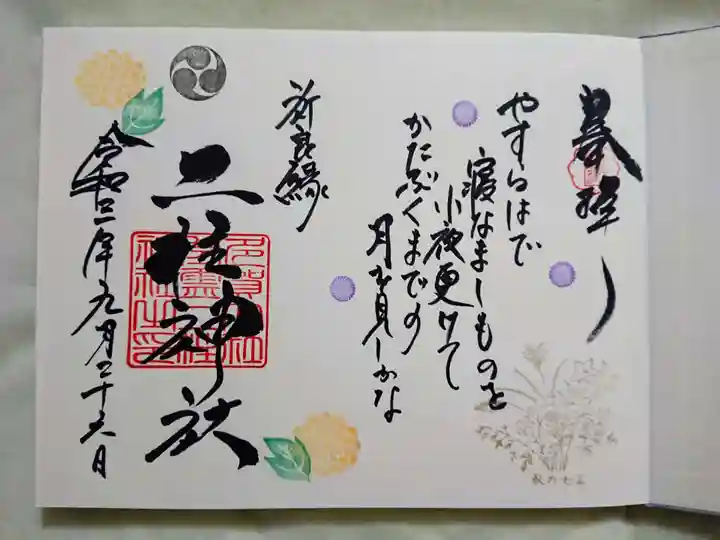 奉拝
やすらはで
寝なましものを
小夜更けて
かたぶくまでの
月を見しかな
祈良縁
二柱神社
令和三年九月二十六日